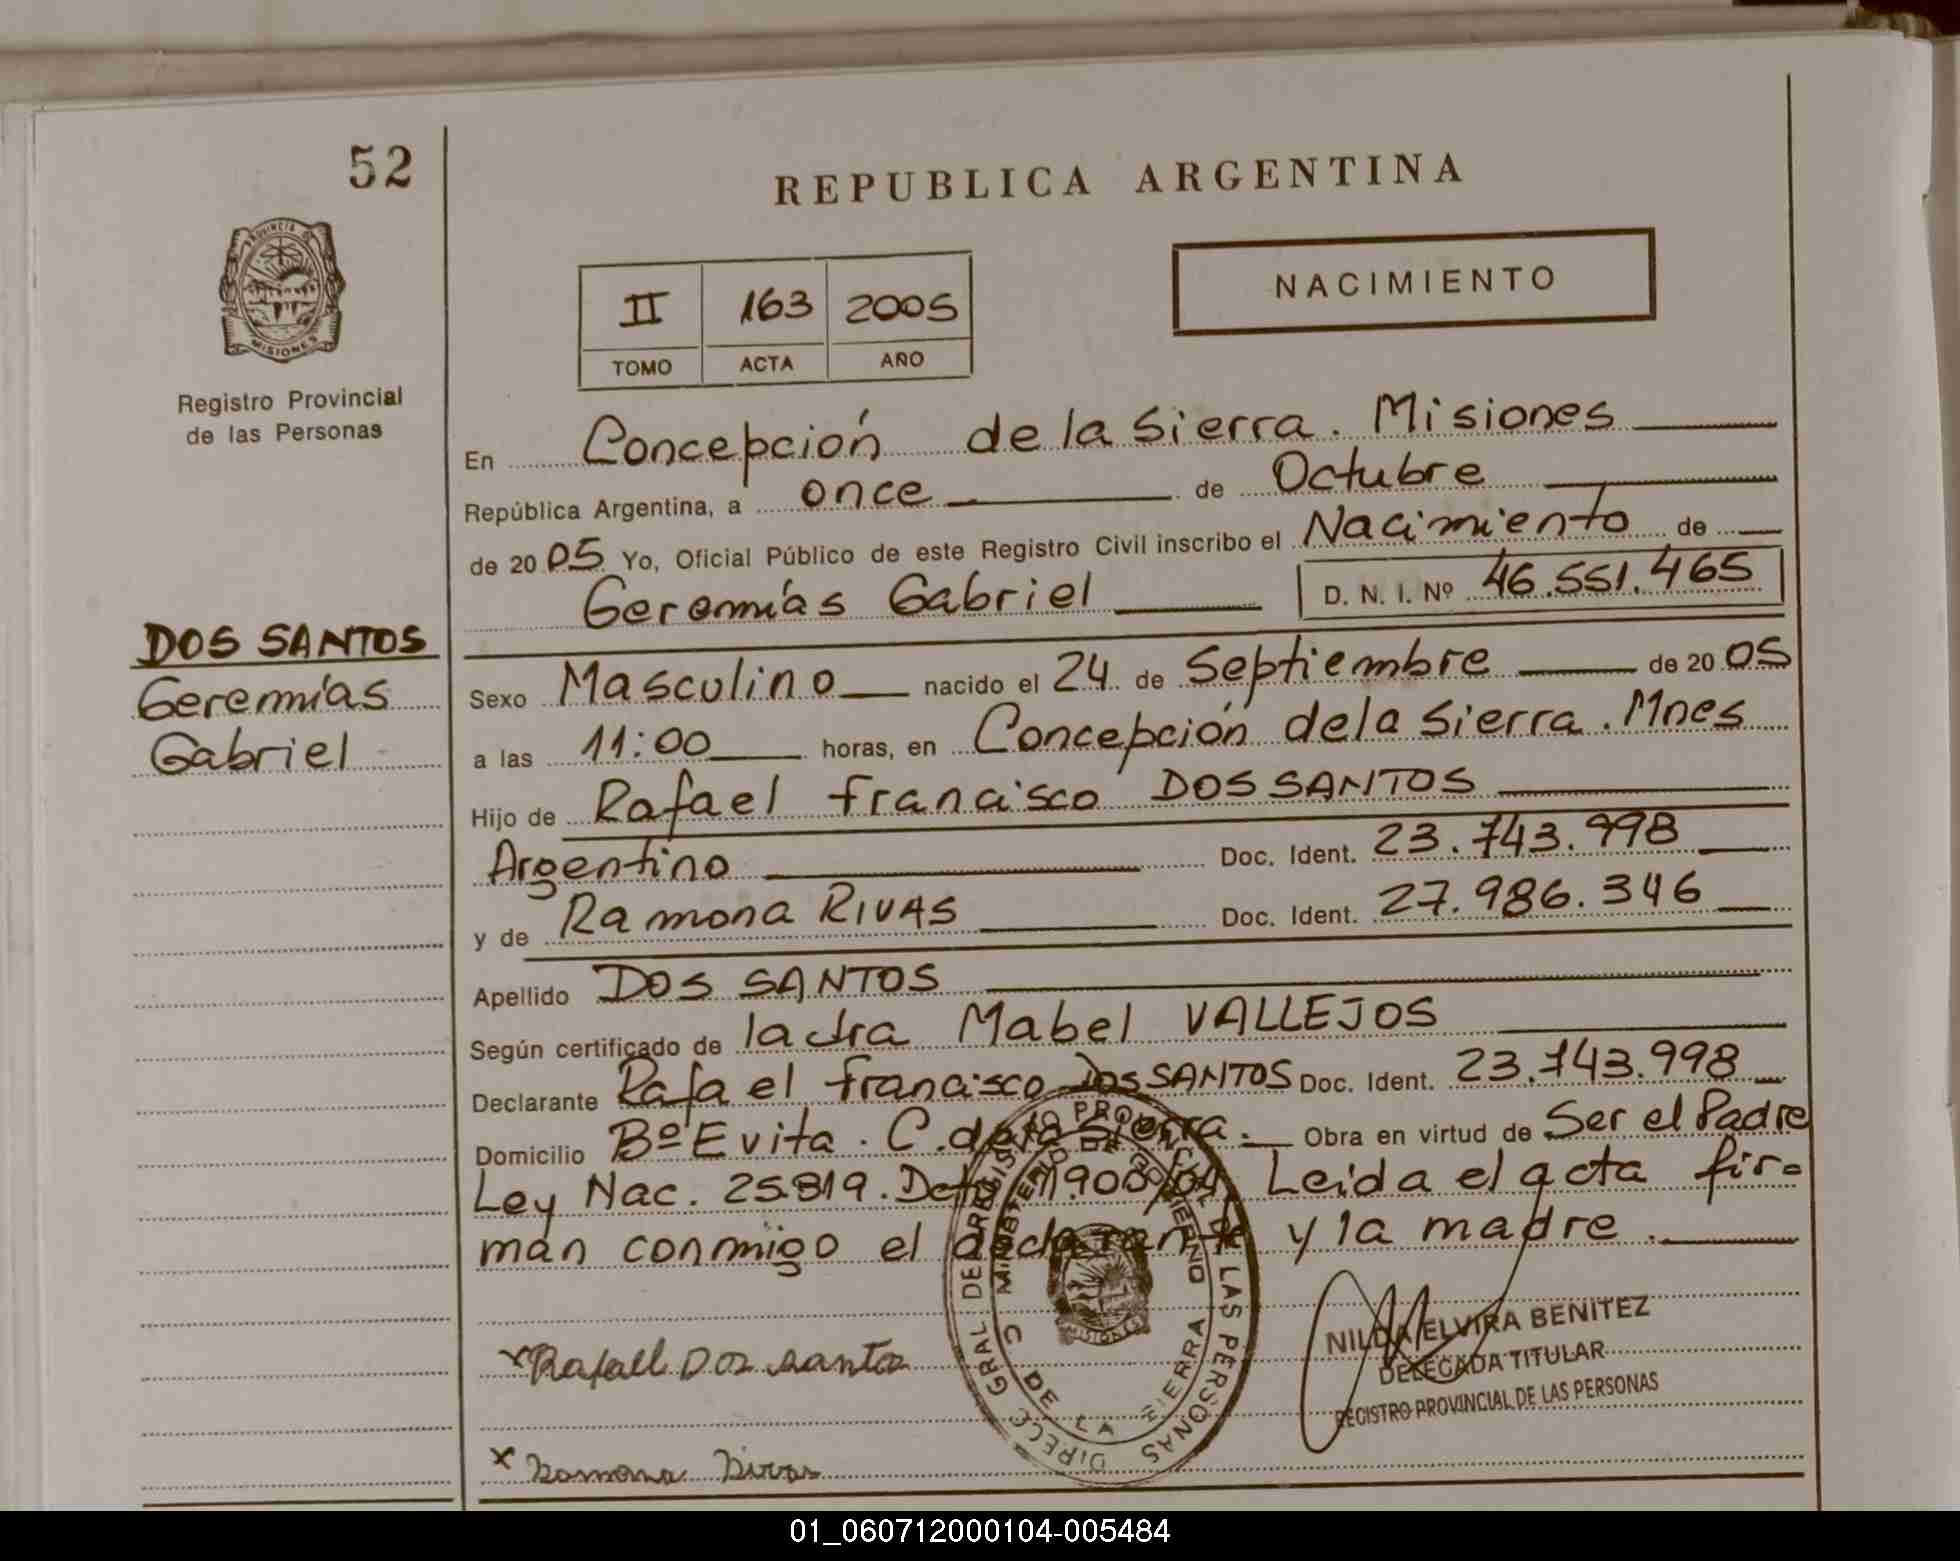 52
REPUBLICA ARGENTINA
PROVINCIA DE
MISIONES
Registro Provincial
de las Personas
II 163 2005
TOMO ACTA AÑO
NACIMIENTO
En Concepción de la Sierra. Misiones
República Argentina, a once de Octubre
de 2005 Yo, Oficial Público de este Registro Civil inscribo el Nacimiento de
Geremías Gabriel D. N. I. Nº 46.551.465
DOS SANTOS
Geremías
Gabriel
Sexo Masculino nacido el 24 de Septiembre de 2005
a las 11:00 horas, en Concepción de la Sierra. Mnes
Hijo de Rafael Francisco DOS SANTOS
Argentino Doc. Ident. 23.743.998
y de Ramona RIVAS Doc. Ident. 27.986.346
Apellido DOS SANTOS
Según certificado de la dra Mabel VALLEJOS
Declarante Rafael Francisco DOS SANTOS Doc. Ident. 23.743.998
Domicilio Bº Evita. C. de la Sierra. Obra en virtud de Ser el Padre
Ley Nac. 25.819. Deto 1.900/04 Leida el acta fir-
man conmigo el declarante y la madre.
DIRECC GRAL DE REGISTRO PROVINCIAL DE LAS PERSONAS
MINISTERIO DE GOBIERNO
C DE LA SIERRA
MISIONES
x Rafael Dos santos
x Ramona Rivas
NILDA ELVIRA BENITEZ
DELEGADA TITULAR
REGISTRO PROVINCIAL DE LAS PERSONAS
01_060712000104-005484